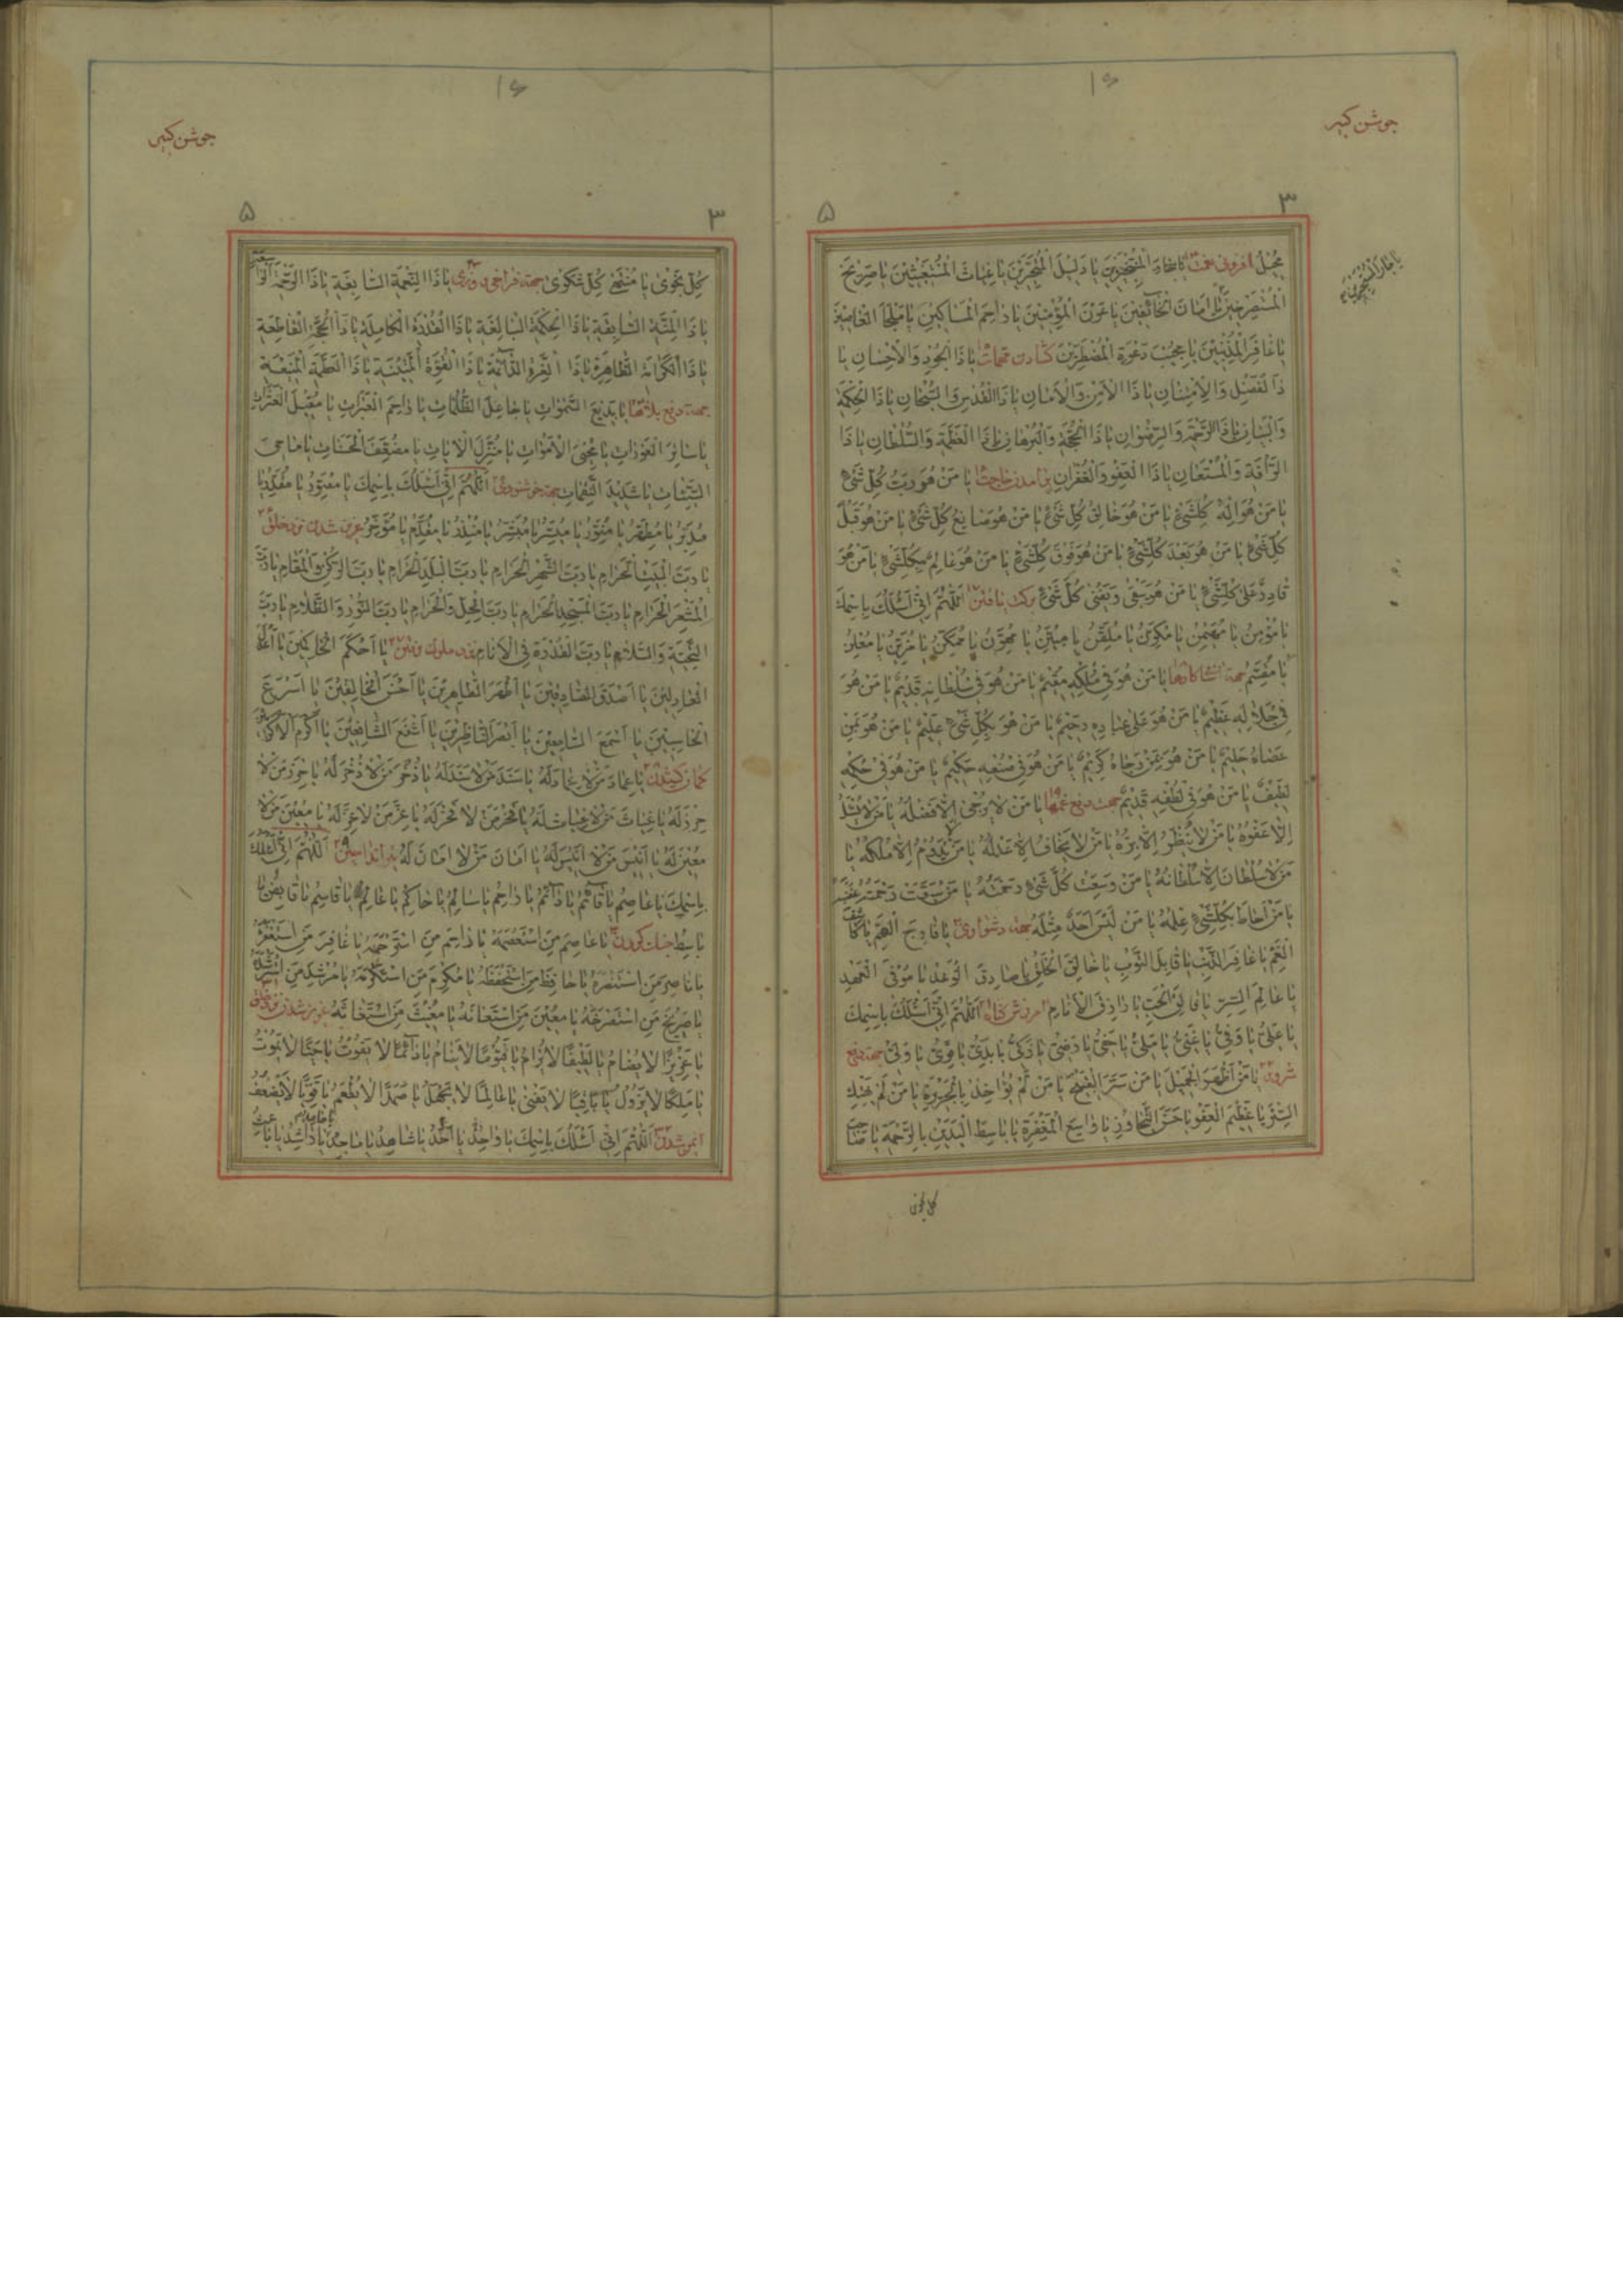 جوشن کبیر
۱۶
۳
۵
یا جار المستجیرین
مُجِيلُ افزونی نعمت یا جَارَ الْمُسْتَجِيرِينَ يَا دَلِيلَ الْمُتَحَيِّرِينَ يَا غِيَاثَ الْمُسْتَغِيثِينَ يَا صَرِيخَ
الْمُسْتَصْرِخِينَ يَا أَمَانَ الْخَائِفِينَ يَا عَوْنَ الْمُؤْمِنِينَ يَا رَاحِمَ الْمَسَاكِينِ يَا مَلْجَأَ الْعَاصِينَ
يَا غَافِرَ الْمُذْنِبِينَ يَا مُجِيبَ دَعْوَةِ الْمُضْطَرِّينَ يَا ذَا الْجُودِ وَالْإِحْسَانِ يَا
ذَا الْفَضْلِ وَالْإِمْتِنَانِ يَا ذَا الْأَمْنِ وَالْأَمَانِ يَا ذَا الْقُدْسِ وَالسُّبْحَانِ يَا ذَا الْحِكْمَةِ
وَالْبَيَانِ يَا ذَا الرَّحْمَةِ وَالرِّضْوَانِ يَا ذَا الْحُجَّةِ وَالْبُرْهَانِ يَا ذَا الْعَظَمَةِ وَالسُّلْطَانِ يَا ذَا
الرَّأْفَةِ وَالْمُسْتَعَانِ يَا ذَا الْعَفْوِ وَالْغُفْرَانِ برآمدن حاجت يَا مَنْ هُوَ رَبُّ كُلِّ شَيْءٍ
يَا مَنْ هُوَ إِلَهُ كُلِّشَيْءٍ يَا مَنْ هُوَ خَالِقُ كُلِّ شَيْءٍ يَا مَنْ هُوَ صَانِعُ كُلِّ شَيْءٍ يَا مَنْ هُوَ قَبْلَ
كُلِّ شَيْءٍ يَا مَنْ هُوَ بَعْدَ كُلِّشَيْءٍ يَا مَنْ هُوَ فَوْقَ كُلِّشَيْءٍ يَا مَنْ هُوَ عَالِمٌ بِكُلِّشَيْءٍ يَا مَنْ هُوَ
قَادِرٌ عَلَى كُلِّشَيْءٍ يَا مَنْ هُوَ يَبْقَى وَيَفْنَى كُلُّ شَيْءٍ برکت یافتن اَللّٰهُمَّ إِنِّي أَسْئَلُكَ بِاسْمِكَ
يَا مُؤْمِنُ يَا مُهَيْمِنُ يَا مُكَوِّنُ يَا مُلَقِّنُ يَا مُبَيِّنُ يَا مُهَوِّنُ يَا مُمَكِّنُ يَا مُزَيِّنُ يَا مُعْلِنُ
يَا مُقَسِّمُ يَا مَنْ هُوَ فِي مُلْكِهِ مُقِيمٌ يَا مَنْ هُوَ فِي سُلْطَانِهِ قَدِيمٌ يَا مَنْ هُوَ
فِي جَلَالِهِ عَظِيمٌ يَا مَنْ هُوَ عَلَى عِبَادِهِ رَحِيمٌ يَا مَنْ هُوَ بِكُلِّ شَيْءٍ عَلِيمٌ يَا مَنْ هُوَ بِمَنْ
عَصَاهُ حَلِيمٌ يَا مَنْ هُوَ بِمَنْ رَجَاهُ كَرِيمٌ يَا مَنْ هُوَ فِي صُنْعِهِ حَكِيمٌ يَا مَنْ هُوَ فِي حِكْمَتِهِ
لَطِيفٌ يَا مَنْ هُوَ فِي لُطْفِهِ قَدِيمٌ جهت دفع غمها يَا مَنْ لَا يُرْجَى إِلَّا فَضْلُهُ يَا مَنْ لَا يُسْئَلُ
إِلَّا عَفْوُهُ يَا مَنْ لَا يُنْظَرُ إِلَّا بِرُّهُ يَا مَنْ لَا يُخَافُ إِلَّا عَدْلُهُ يَا مَنْ لَا يَدُومُ إِلَّا مُلْكُهُ يَا
مَنْ لَا سُلْطَانَ إِلَّا سُلْطَانُهُ يَا مَنْ وَسِعَتْ كُلَّ شَيْءٍ رَحْمَتُهُ يَا مَنْ سَبَقَتْ رَحْمَتُهُ غَضَبَهُ
يَا مَنْ أَحَاطَ بِكُلِّشَيْءٍ عِلْمُهُ يَا مَنْ لَيْسَ أَحَدٌ مِثْلَهُ يَا فَارِجَ الْهَمِّ يَا كَاشِفَ
الْغَمِّ يَا غَافِرَ الذَّنْبِ يَا قَابِلَ التَّوْبِ يَا خَالِقَ الْخَلْقِ يَا صَادِقَ الْوَعْدِ يَا مُوفِيَ الْعَهْدِ
يَا عَالِمَ السِّرِّ يَا فَالِقَ الْحَبِّ يَا رَازِقَ الْأَنَامِ اَللّٰهُمَّ إِنِّي أَسْئَلُكَ بِاسْمِكَ
يَا عَلِيُّ يَا وَفِيُّ يَا غَنِيُّ يَا مَلِيُّ يَا حَفِيُّ يَا رَضِيُّ يَا زَكِيُّ يَا بَدِيُّ يَا قَوِيُّ يَا وَلِيُّ جهت دفع
يَا مَنْ أَظْهَرَ الْجَمِيلَ يَا مَنْ سَتَرَ الْقَبِيحَ يَا مَنْ لَمْ يُؤَاخِذْ بِالْجَرِيرَةِ يَا مَنْ لَمْ يَهْتِكِ
السِّتْرَ يَا عَظِيمَ الْعَفْوِ يَا حَسَنَ التَّجَاوُزِ يَا وَاسِعَ الْمَغْفِرَةِ يَا بَاسِطَ الْيَدَيْنِ بِالرَّحْمَةِ يَا صَاحِبَ
كل نجوی
جوشن کبیر
۱۶
۳
۵
كُلِّ نَجْوَى يَا مُنْتَهَى كُلِّ شَكْوَى جهت فراخی روزی يَا ذَا النِّعْمَةِ السَّابِغَةِ يَا ذَا الرَّحْمَةِ الْوَاسِعَةِ
يَا ذَا الْمِنَّةِ السَّابِقَةِ يَا ذَا الْحِكْمَةِ الْبَالِغَةِ يَا ذَا الْقُدْرَةِ الْكَامِلَةِ يَا ذَا الْحُجَّةِ الْقَاطِعَةِ
يَا ذَا الْكَرَامَةِ الظَّاهِرَةِ يَا ذَا الْعِزَّةِ الدَّائِمَةِ يَا ذَا الْقُوَّةِ الْمَتِينَةِ يَا ذَا الْعَظَمَةِ الْمَنِيعَةِ
جهت دفع بلاها يَا بَدِيعَ السَّمٰوَاتِ يَا جَاعِلَ الظُّلُمَاتِ يَا رَاحِمَ الْعَبَرَاتِ يَا مُقِيلَ الْعَثَرَاتِ
يَا سَاتِرَ الْعَوْرَاتِ يَا مُحْيِيَ الْأَمْوَاتِ يَا مُنْزِلَ الْآيَاتِ يَا مُضَعِّفَ الْحَسَنَاتِ يَا مَاحِيَ
السَّيِّئَاتِ يَا شَدِيدَ النَّقِمَاتِ جهت خوشنودی اَللّٰهُمَّ إِنِّي أَسْئَلُكَ بِاسْمِكَ يَا مُصَوِّرُ يَا مُقَدِّرُ يَا
مُدَبِّرُ يَا مُطَهِّرُ يَا مُنَوِّرُ يَا مُيَسِّرُ يَا مُبَشِّرُ يَا مُنْذِرُ يَا مُقَدِّمُ يَا مُؤَخِّرُ عزیز شدن نزد خلق
يَا رَبَّ الْبَيْتِ الْحَرَامِ يَا رَبَّ الشَّهْرِ الْحَرَامِ يَا رَبَّ الْبَلَدِ الْحَرَامِ يَا رَبَّ الرُّكْنِ وَالْمَقَامِ يَا رَبَّ
الْمَشْعَرِ الْحَرَامِ يَا رَبَّ الْمَسْجِدِ الْحَرَامِ يَا رَبَّ الْحِلِّ وَالْحَرَامِ يَا رَبَّ النُّورِ وَالظَّلَامِ يَا رَبَّ
التَّحِيَّةِ وَالسَّلَامِ يَا رَبَّ الْقُدْرَةِ فِي الْأَنَامِ نزد ملوک رفتن يَا أَحْكَمَ الْحَاكِمِينَ يَا أَعْدَلَ
الْعَادِلِينَ يَا أَصْدَقَ الصَّادِقِينَ يَا أَطْهَرَ الطَّاهِرِينَ يَا أَحْسَنَ الْخَالِقِينَ يَا أَسْرَعَ
الْحَاسِبِينَ يَا أَسْمَعَ السَّامِعِينَ يَا أَبْصَرَ النَّاظِرِينَ يَا أَشْفَعَ الشَّافِعِينَ يَا أَكْرَمَ الْأَكْرَمِينَ
کمان کشیدن يَا عِمَادَ مَنْ لَا عِمَادَ لَهُ يَا سَنَدَ مَنْ لَا سَنَدَ لَهُ يَا ذُخْرَ مَنْ لَا ذُخْرَ لَهُ يَا حِرْزَ مَنْ لَا
حِرْزَ لَهُ يَا غِيَاثَ مَنْ لَا غِيَاثَ لَهُ يَا فَخْرَ مَنْ لَا فَخْرَ لَهُ يَا عِزَّ مَنْ لَا عِزَّ لَهُ يَا مُعِينَ مَنْ لَا
مُعِينَ لَهُ يَا أَنِيسَ مَنْ لَا أَنِيسَ لَهُ يَا أَمَانَ مَنْ لَا أَمَانَ لَهُ تیر انداختن اَللّٰهُمَّ إِنِّي أَسْئَلُكَ
بِاسْمِكَ يَا عَاصِمُ يَا قَائِمُ يَا دَائِمُ يَا رَاحِمُ يَا سَالِمُ يَا حَاكِمُ يَا عَالِمُ يَا قَاسِمُ يَا قَابِضُ يَا
بَاسِطُ جنک کردن يَا عَاصِمَ مَنِ اسْتَعْصَمَهُ يَا رَاحِمَ مَنِ اسْتَرْحَمَهُ يَا غَافِرَ مَنِ اسْتَغْفَرَهُ
يَا نَاصِرَ مَنِ اسْتَنْصَرَهُ يَا حَافِظَ مَنِ اسْتَحْفَظَهُ يَا مُكْرِمَ مَنِ اسْتَكْرَمَهُ يَا مُرْشِدَ مَنِ اسْتَرْشَدَهُ
يَا صَرِيخَ مَنِ اسْتَصْرَخَهُ يَا مُعِينَ مَنِ اسْتَعَانَهُ يَا مُغِيثَ مَنِ اسْتَغَاثَهُ عزیز شدن نزد خلق
يَا عَزِيزًا لَا يُضَامُ يَا لَطِيفًا لَا يُرَامُ يَا قَيُّومًا لَا يَنَامُ يَا دَائِمًا لَا يَفُوتُ يَا حَيًّا لَا يَمُوتُ
يَا مَلِكًا لَا يَزُولُ يَا بَاقِيًا لَا يَفْنَى يَا عَالِمًا لَا يَجْهَلُ يَا صَمَدًا لَا يُطْعَمُ يَا قَوِيًّا لَا يَضْعُفُ
اَللّٰهُمَّ إِنِّي أَسْئَلُكَ بِاسْمِكَ يَا وَاحِدُ يَا أَحَدُ يَا شَاهِدُ يَا مَاجِدُ يَا حَامِدُ يَا رَاشِدُ يَا بَاعِثُ